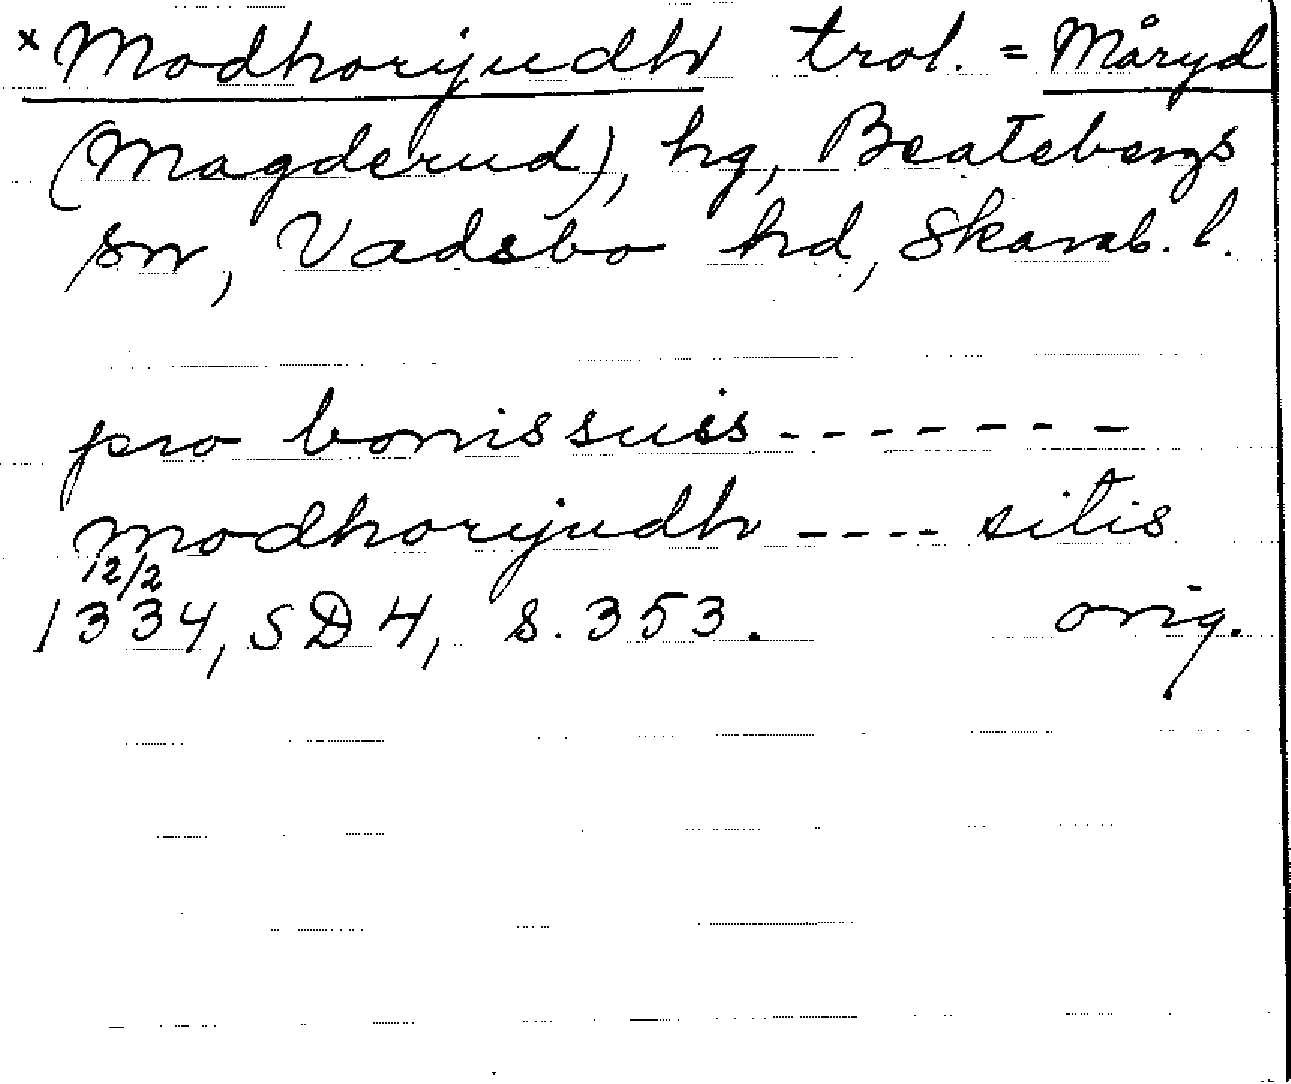 × Modhorijudh trol. = Måryd
(Magderud), hg, Beatebergs
sn, Vadsbo hd, Skarab. l.
pro bonis suis - - - - - - -
modhorijudh - - - - sitis
12/2
1334, SD 4, s. 353. orig.